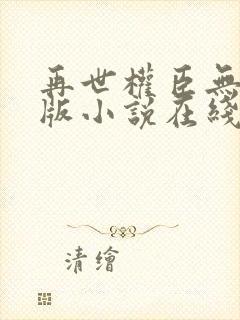 再世權臣無
版小説在綫
清繪